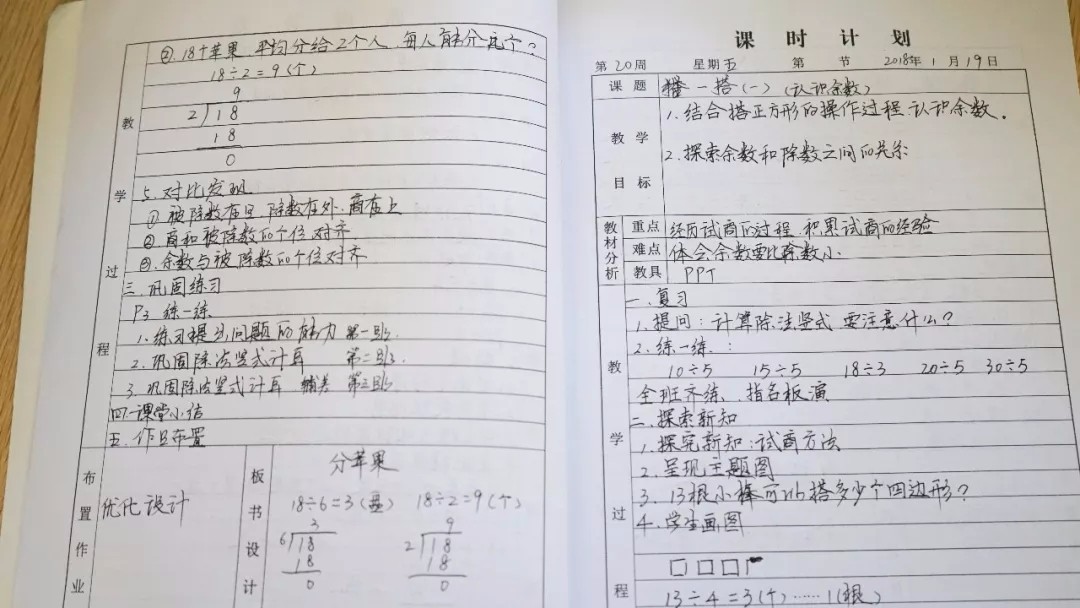 ②.18个苹果,平均分给2个人,每人能分几个?
18÷2=9(个)
9
2 18
18
0
5.对比发现
①被除数在里,除数在外,商在上
②商和被除数的个位对齐
③.余数与被除数的个位对齐
三.巩固练习
P3 练一练
1.练习提出问题的能力 第一题.
2.巩固除法竖式计算 第二题.
3.巩固除法竖式计算 第三题
四.课堂小结
五.作业布置
教学过程
布置作业
优化设计
板书设计
分苹果
18÷6=3(盘) 18÷2=9(个)
3 9
6 18 2 18
18 18
0 0
课时计划
第20周 星期五 第 节 2018年1月19日
课题 搭一搭(一)(认识余数)
教学目标
1.结合搭正方形的操作过程,认识余数.
2.探索余数和除数之间的关系
教材分析
重点 经历试商的过程,积累试商的经验
难点 体会余数要比除数小.
教具 PPT
教学过程
一.复习
1.提问:计算除法竖式要注意什么?
2.练一练:
10÷5 15÷5 18÷3 20÷5 30÷5
全班齐练,指名板演
二.探索新知
1.探究新知:试商方法
2.呈现主题图
3.13根小棒可以搭多少个四边形?
4.学生画图
13÷4=3(个)……1(根)